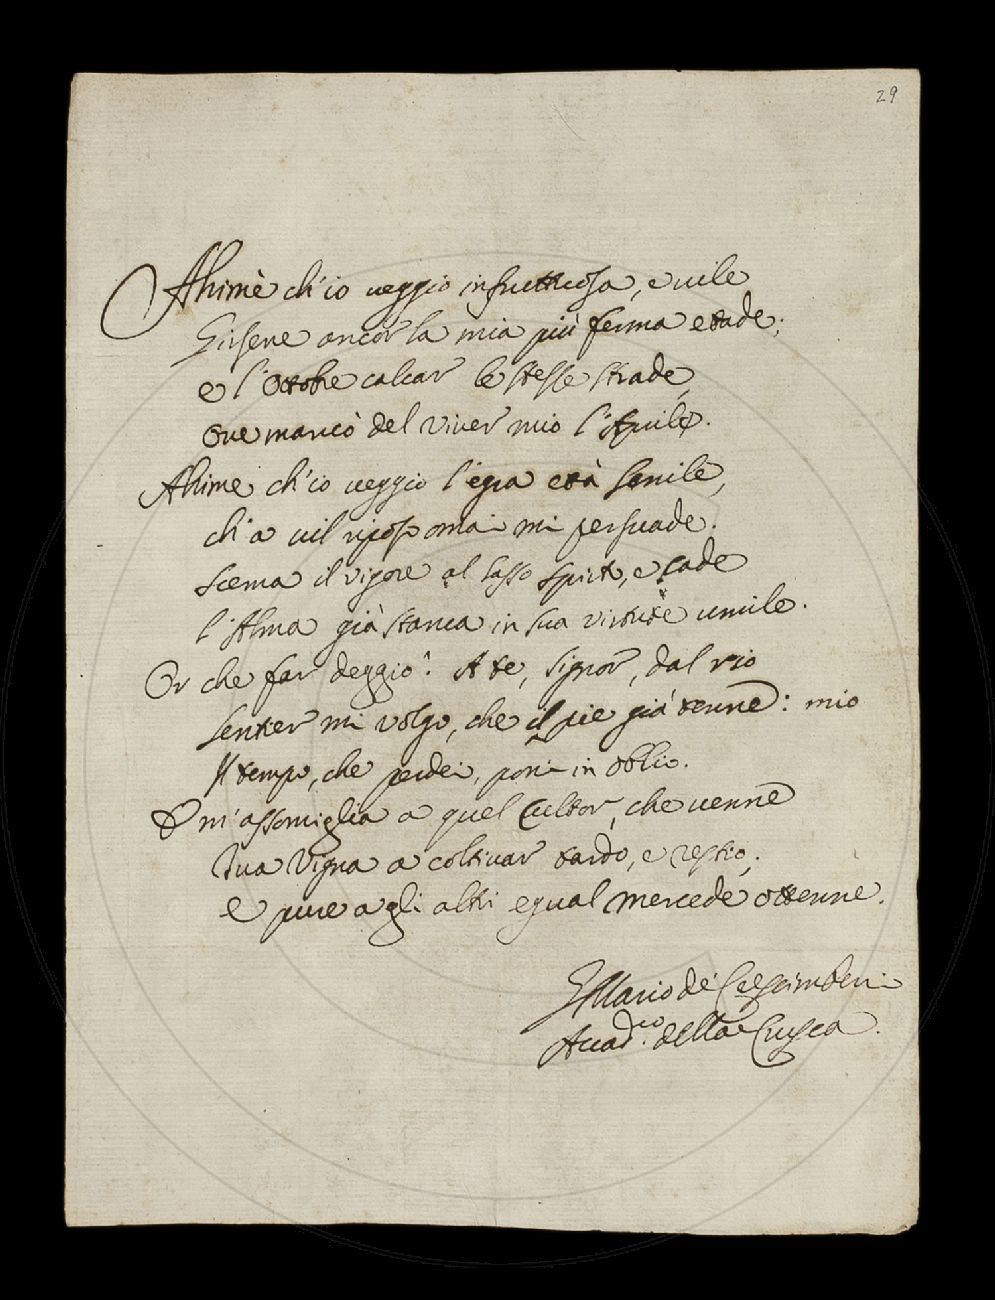 29
Ahimè ch'io veggio infruttuosa, e vile
Girsene ancor la mia più ferma etade;
e l'Ottobre calcar le stesse strade,
Ove mancò del viver mio l'Aprile.
Ahime ch'io veggio l'egra età senile,
ch'a vil riposo omai mi persuade.
scema il vigore al lasso spirto, e cade
l'Alma già stanca in sua virtute umile.
Or che far deggio? A te, Signor, dal rio
sentier mi volgo, che il pie già tenne: mio
Il tempo, che perdei, poni in obblio.
E m'assomiglia a quel Cultor, che venne
Tua Vigna a coltivar tardo, e restio;
e pure agli altri egual mercede ottenne.
Gio: Mario de' Crescimbeni
Accad.co della Crusca.